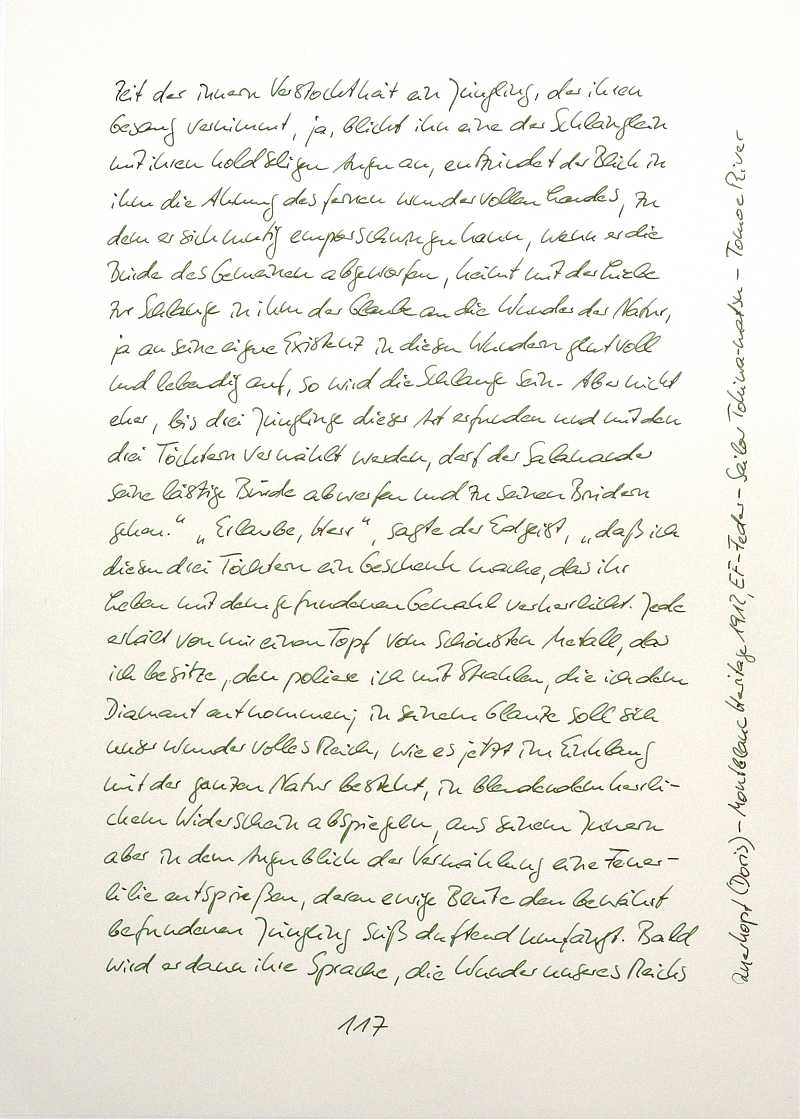 Zeit der innern Verstocktheit ein Jüngling, der ihren
Gesang vernimmt, ja, blickt ihn eine der Schlänglein
mit ihren holdseligen Augen an, entzündet der Blick in
ihm die Ahnung des fernen wundervollen Landes, zu
dem er sich mutig emporschwingen kann, wenn er die
Bürde des Gemeinen abgeworfen, keimt mit der Liebe
zur Schlange in ihm der Glaube an die Wunder der Natur,
ja an seine eigne Existenz in diesen Wundern glutvoll
und lebendig auf, so wird die Schlange sein. Aber nicht
eher, bis drei Jünglinge dieser Art erfunden und mit den
drei Töchtern vermählt werden, darf der Salamander
seine lästige Bürde abwerfen und zu seinen Brüdern
gehen." „Erlaube, Herr", sagte der Erdgeist, „daß ich
diesen drei Töchtern ein Geschenk mache, das ihr
Leben mit dem gefundenen Gemahl verherrlicht. Jede
erhält von mir einen Topf vom schönsten Metall, das
ich besitze, den poliere ich mit Strahlen, die ich dem
Diamant entnommen; in seinem Glanze soll sich
unser wundervolles Reich, wie es jetzt im Einklang
mit der ganzen Natur besteht, in blendendem herrli-
chem Widerschein abspiegeln, aus seinem Innern
aber in dem Augenblick der Vermählung eine Feuer-
lilie entsprießen, deren ewige Blüte den bewährt
befundenen Jüngling süß duftend umfängt. Bald
wird er dann ihre Sprache, die Wunder unseres Reichs
117
Querkopf (Doris) – Montblanc Heritage 1912, EF-Feder – Sailor Tokiwa-matsu – Tomoe River